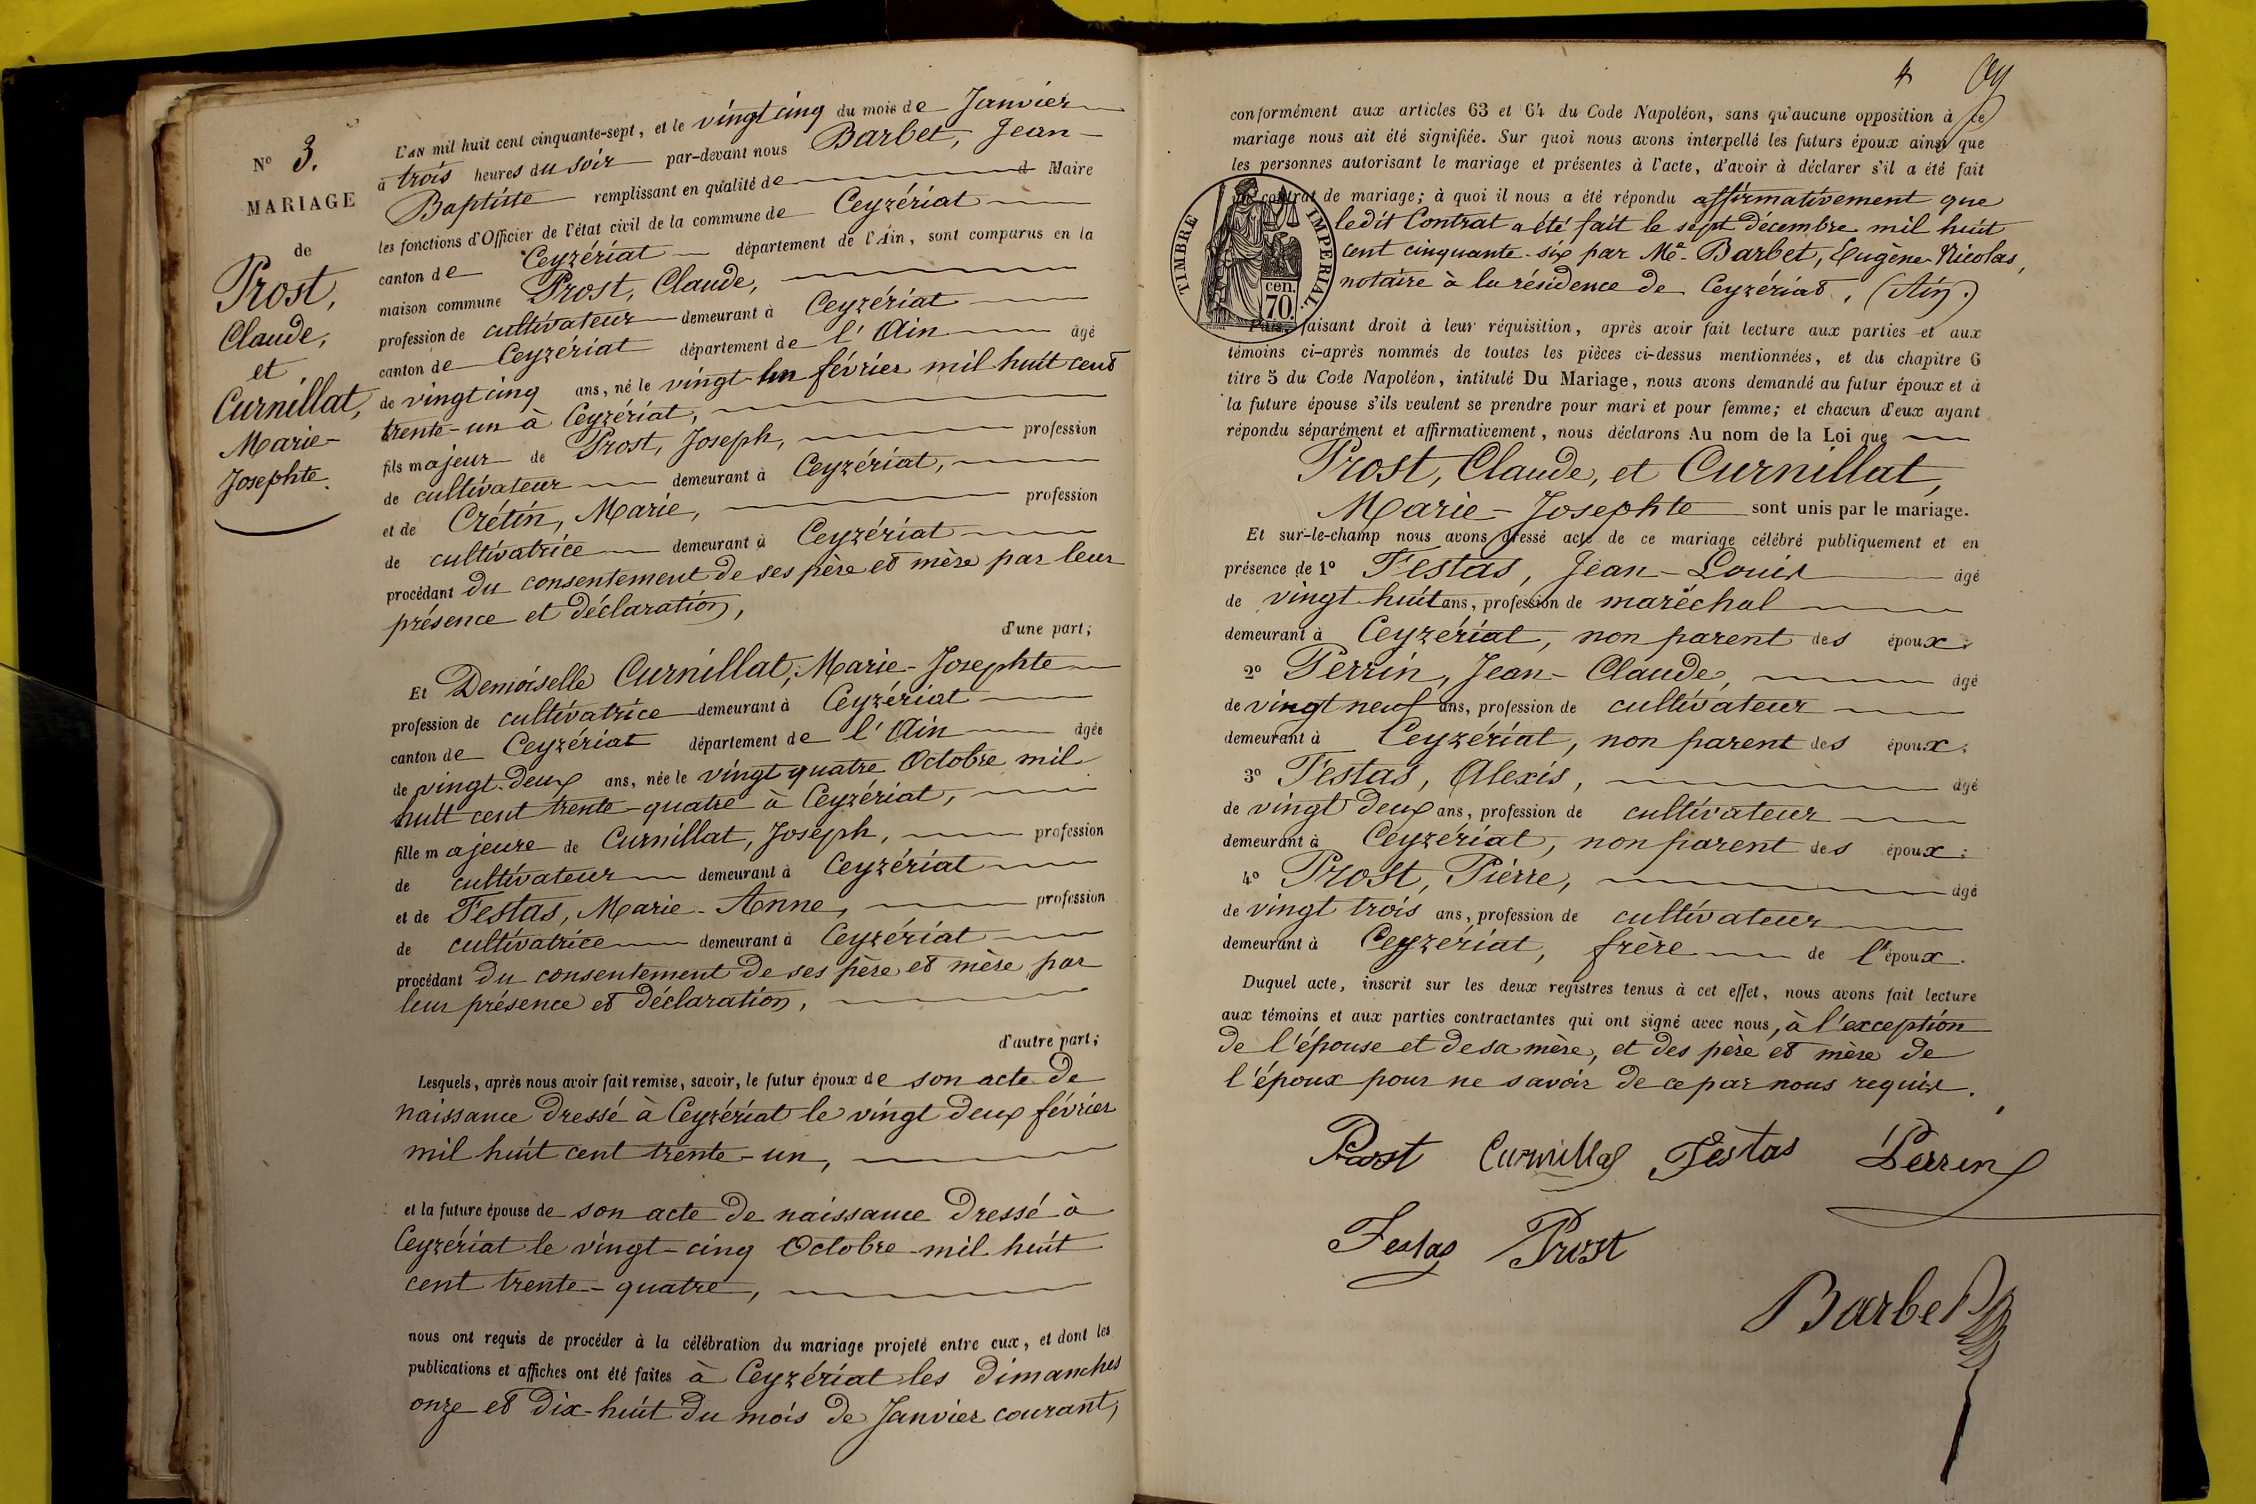 Nº 3.
MARIAGE
de
Prost,
Claude,
et
Curnillat,
Marie-
Josephte.
L'AN mil huit cent cinquante-sept, et le vingt cinq du mois de Janvier
à trois heures du soir par-devant nous Barbet, Jean-
Baptiste remplissant en qualité de Maire
les fonctions d'Officier de l'état civil de la commune de Ceyzériat
canton de Ceyzériat département de l'Ain, sont comparus en la
maison commune Prost, Claude,
profession de cultivateur demeurant à Ceyzériat
canton de Ceyzériat département de l'Ain âgé
de vingt cinq ans, né le vingt-un février mil huit cent
trente-un à Ceyzériat,
fils majeur de Prost, Joseph, profession
de cultivateur demeurant à Ceyzériat,
et de Crétin, Marie, profession
de cultivatrice demeurant à Ceyzériat
procédant du consentement de ses père et mère par leur
présence et déclaration,
d'une part;
Et Demoiselle Curnillat, Marie-Josephte
profession de cultivatrice demeurant à Ceyzériat
canton de Ceyzériat département de l'Ain âgée
de vingt-deux ans, née le vingt quatre Octobre mil
huit cent trente-quatre à Ceyzériat,
fille majeure de Curnillat, Joseph, profession
de cultivateur demeurant à Ceyzériat
et de Festas, Marie-Anne, profession
de cultivatrice demeurant à Ceyzériat
procédant du consentement de ses père et mère par
leur présence et déclaration,
d'autre part;
Lesquels, après nous avoir fait remise, savoir, le futur époux de son acte de
naissance dressé à Ceyzériat le vingt deux février
mil huit cent trente-un,
et la future épouse de son acte de naissance dressé à
Ceyzériat le vingt-cinq Octobre mil huit
cent trente-quatre,
nous ont requis de procéder à la célébration du mariage projeté entre eux, et dont les
publications et affiches ont été faites à Ceyzériat les dimanches
onze et dix-huit du mois de Janvier courant,
4
conformément aux articles 63 et 64 du Code Napoléon, sans qu'aucune opposition à ce
mariage nous ait été signifiée. Sur quoi nous avons interpellé les futurs époux ainsi que
les personnes autorisant le mariage et présentes à l'acte, d'avoir à déclarer s'il a été fait
un contrat de mariage; à quoi il nous a été répondu affirmativement que
ledit Contrat a été fait le sept décembre mil huit
cent cinquante-six par Me. Barbet, Eugène-Nicolas,
notaire à la résidence de Ceyzériat, (Ain.)
TIMBRE IMPERIAL.
cen.
70.
Puis, faisant droit à leur réquisition, après avoir fait lecture aux parties et aux
témoins ci-après nommés de toutes les pièces ci-dessus mentionnées, et du chapitre 6
titre 5 du Code Napoléon, intitulé Du Mariage, nous avons demandé au futur époux et à
la future épouse s'ils veulent se prendre pour mari et pour femme; et chacun d'eux ayant
répondu séparément et affirmativement, nous déclarons Au nom de la Loi que
Prost, Claude, et Curnillat,
Marie-Josephte sont unis par le mariage.
Et sur-le-champ nous avons dressé acte de ce mariage célébré publiquement et en
présence de 1º Festas, Jean-Louis âgé
de vingt huit ans, profession de maréchal
demeurant à Ceyzériat, non parent des époux;
2º Perrin, Jean-Claude, âgé
de vingt neuf ans, profession de cultivateur
demeurant à Ceyzériat, non parent des époux;
3º Festas, Alexis, âgé
de vingt deux ans, profession de cultivateur
demeurant à Ceyzériat, non parent des époux;
4º Prost, Pierre, âgé
de vingt trois ans, profession de cultivateur
demeurant à Ceyzériat, frère de l'époux.
Duquel acte, inscrit sur les deux registres tenus à cet effet, nous avons fait lecture
aux témoins et aux parties contractantes qui ont signé avec nous, à l'exception
de l'épouse et de sa mère, et des père et mère de
l'époux pour ne savoir de ce par nous requis.
Prost Curnillat Festas Perrin
Festas Prost
Barbet